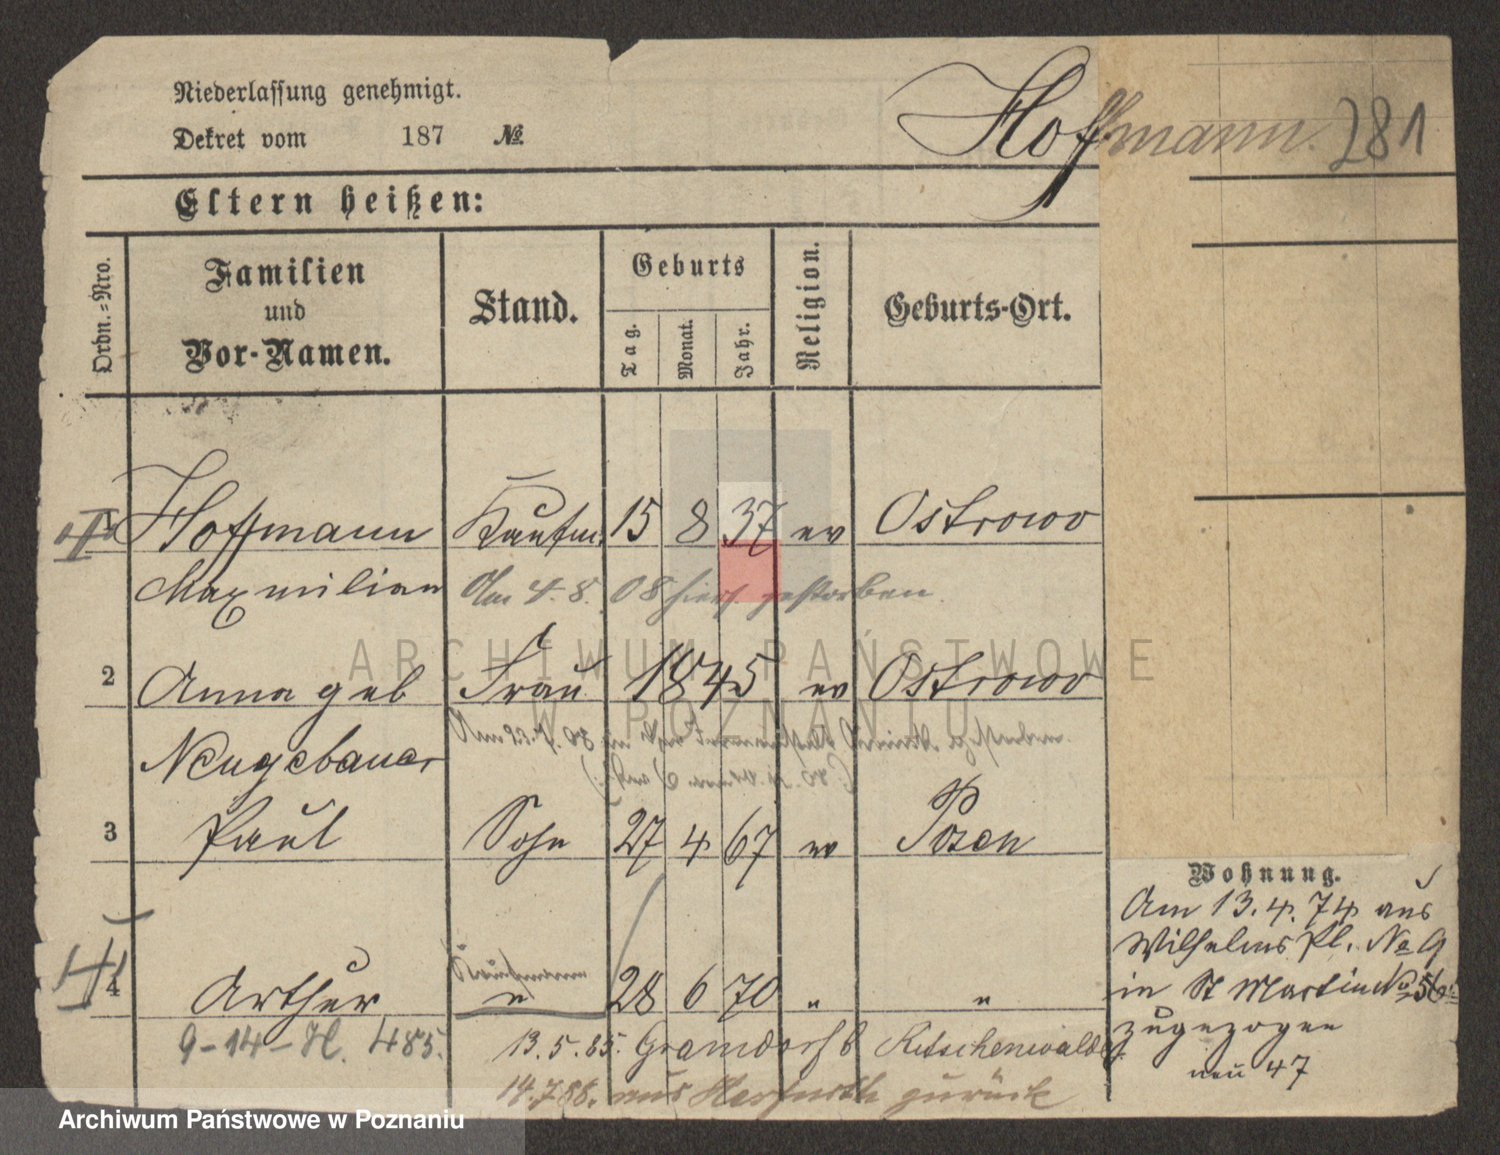 Niederlassung genehmigt.
Dekret vom 187 №
Hoffmann. 281
Eltern heißen:
Ordn.-Nro.
Familien
und
Vor-Namen.
Stand.
Geburts
Tag. Monat. Jahr.
Religion.
Geburts-Ort.
Hoffmann Kaufm. 15 8 37 ev Ostrowo
Maxmilian Am 4. 8. 08 hier gestorben.
2 Anna geb Frau 1845 ev Ostrowo
Neugebauer
3 Paul Sohn 27 4 67 ev Posen
4 Arthur " 28 6 70 " "
9-14-H. 485.
13. 5. 85. Gramdorf b Ritschenwalde
14.7.88. aus zurück
Wohnung.
Am 13. 4. 74 aus
Wilhelms Pl. No 9
in St Martin No 56
zugezogen
neu 47
ARCHIWUM PAŃSTWOWE
W POZNANIU
Archiwum Państwowe w Poznaniu